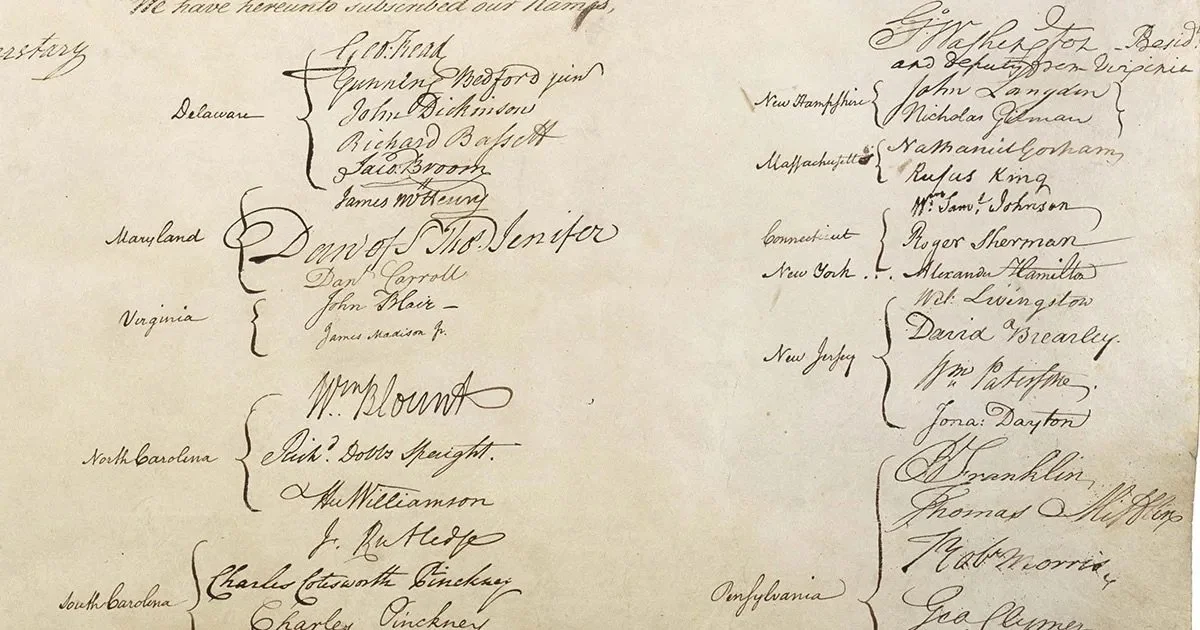 We have hereunto subscribed our Names,
Secretary
Delaware
Geo: Read
Gunning Bedford jun
John Dickinson
Richard Bassett
Jaco: Broom
Maryland
James McHenry
Dan of St Thos. Jenifer
Danl Carroll
Virginia
John Blair —
James Madison Jr.
North Carolina
Wm. Blount
Richd. Dobbs Spaight.
Hu Williamson
South Carolina
J. Rutledge
Charles Cotesworth Pinckney
Charles Pinckney
Go. Washington — Presidt
and deputy from Virginia
New Hampshire
John Langdon
Nicholas Gilman
Massachusetts
Nathaniel Gorham
Rufus King
Connecticut
Wm. Saml. Johnson
Roger Sherman
New York . . . Alexander Hamilton
New Jersey
Wil: Livingston
David Brearley.
Wm Paterson.
Jona: Dayton
Pensylvania
B Franklin
Thomas Mifflin
Robt Morris
Geo Clymer